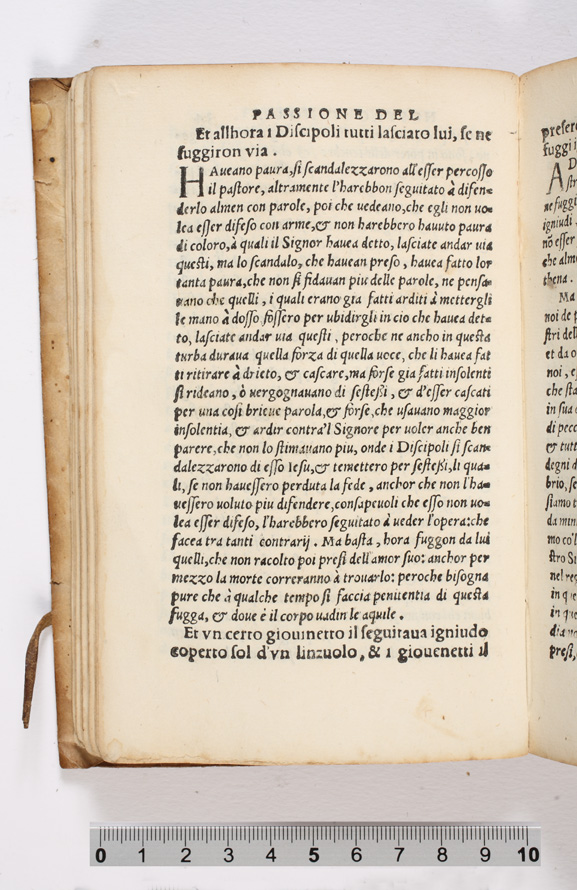 PASSIONE DEL
Et allhora i Discipoli tutti lasciato lui, se ne
fuggiron via.
HAueano paura, si scandalezzarono all'esser percosso
il pastore, altramente l'harebbon seguitato à difen-
derlo almen con parole, poi che uedeano, che egli non uo-
lea esser difeso con arme, & non harebbero hauuto paura
di coloro, à quali il Signor hauea detto, lasciate andar uia
questi, ma lo scandalo, che hauean preso, hauea fatto lor
tanta paura, che non si fidauan piu delle parole, ne pensa-
uano che quelli, i quali erano gia fatti arditi à mettergli
le mano à dosso fossero per ubidirgli in cio che hauea det-
to, lasciate andar uia questi, peroche ne ancho in questa
turba duraua quella forza di quella uoce, che li hauea fat
ti ritirare à drieto, & cascare, ma forse gia fatti insolenti
si rideano, ò uergognauano di sestessi, & d'esser cascati
per una cosi brieue parola, & forse, che usauano maggior
insolentia, & ardir contra'l Signore per uoler anche ben
parere, che non lo stimauano piu, onde i Discipoli si scan-
dalezzarono di esso Iesu, & temettero per sestessi, li qua-
li, se non hauessero perduta la fede, anchor che non l'ha-
uessero uoluto piu difendere, consapeuoli che esso non uo-
lea esser difeso, l'harebbero seguitato à ueder l'opera: che
facea tra tanti contrarij. Ma basta, hora fuggon da lui
quelli, che non racolto poi presi dell'amor suo: anchor per
mezzo la morte correranno à trouarlo: peroche bisogna
pure che à qualche tempo si faccia penitentia di questa
fugga, & doue è il corpo uadin le aquile.
Et vn certo giouinetto il seguitaua igniudo
coperto sol d'vn linzuolo, & i giouenetti il
preser
fuggi i
A D
str
ne fuggi
igniudi,
nō esser
che alm
thena.
Ma
noi de p
stri del
et da o
noi, e
che sta
in sua
di pecc
& tutt
degni d
brio, se
stiamo t
da min
mo co'l
stro Si
nel reg
in q
in q
dia
presi,
0 1 2 3 4 5 6 7 8 9 10